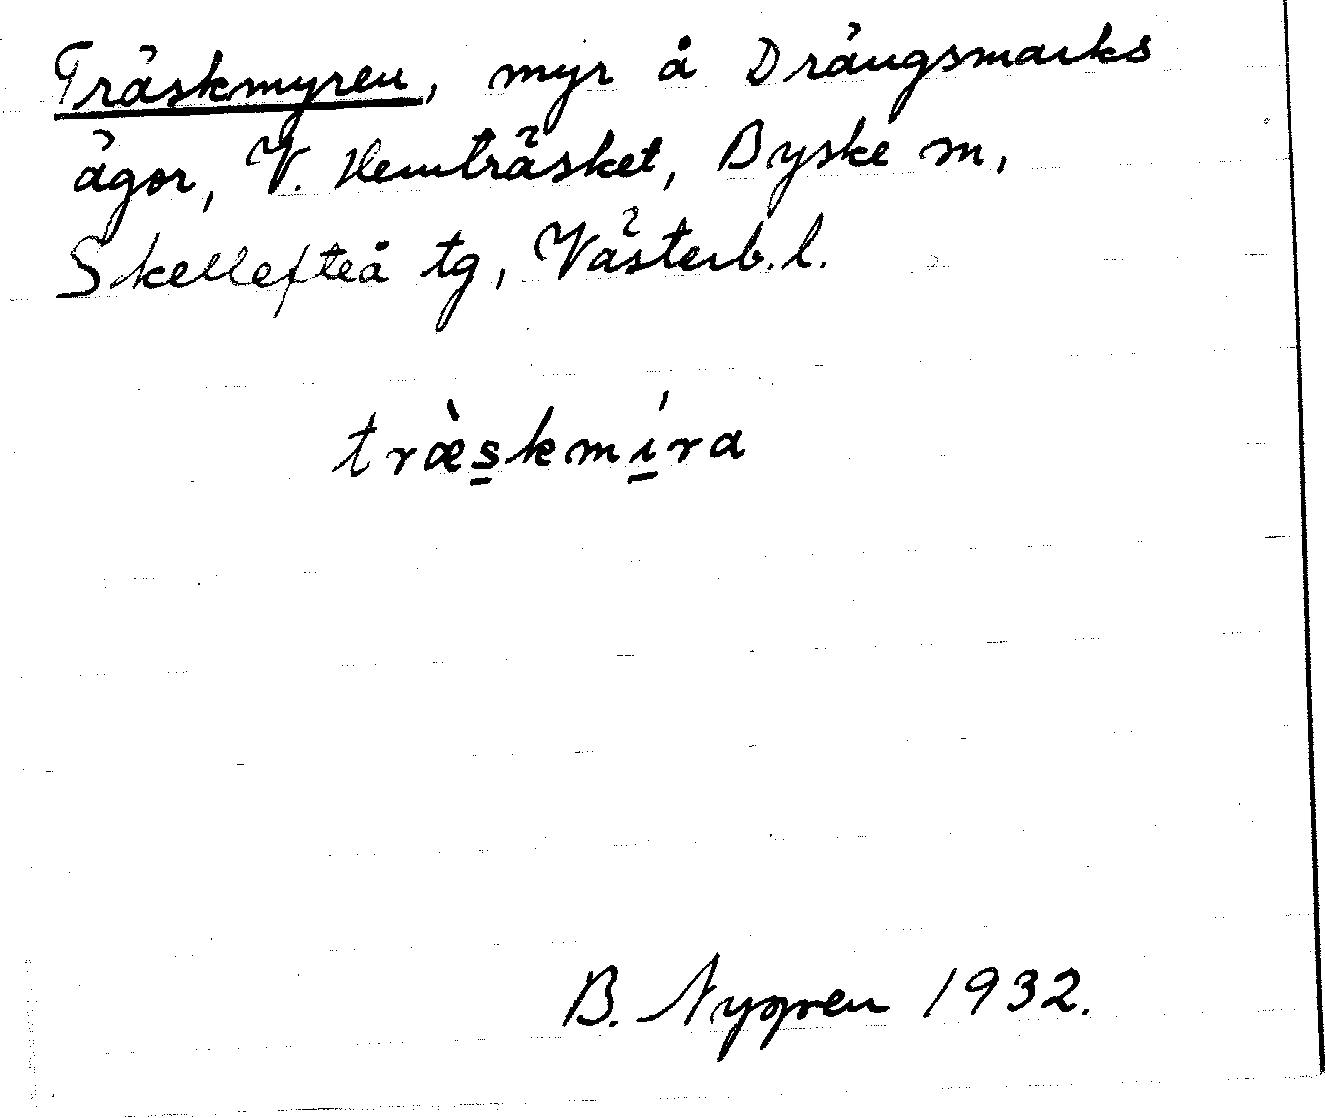 Träskmyren, myr å Drängsmarks
ägor, V. Hemträsket, Byske sn,
Skellefteå tg, Västerb. l.
træ̀s̲kmí̲ra
B. Nygren 1932.